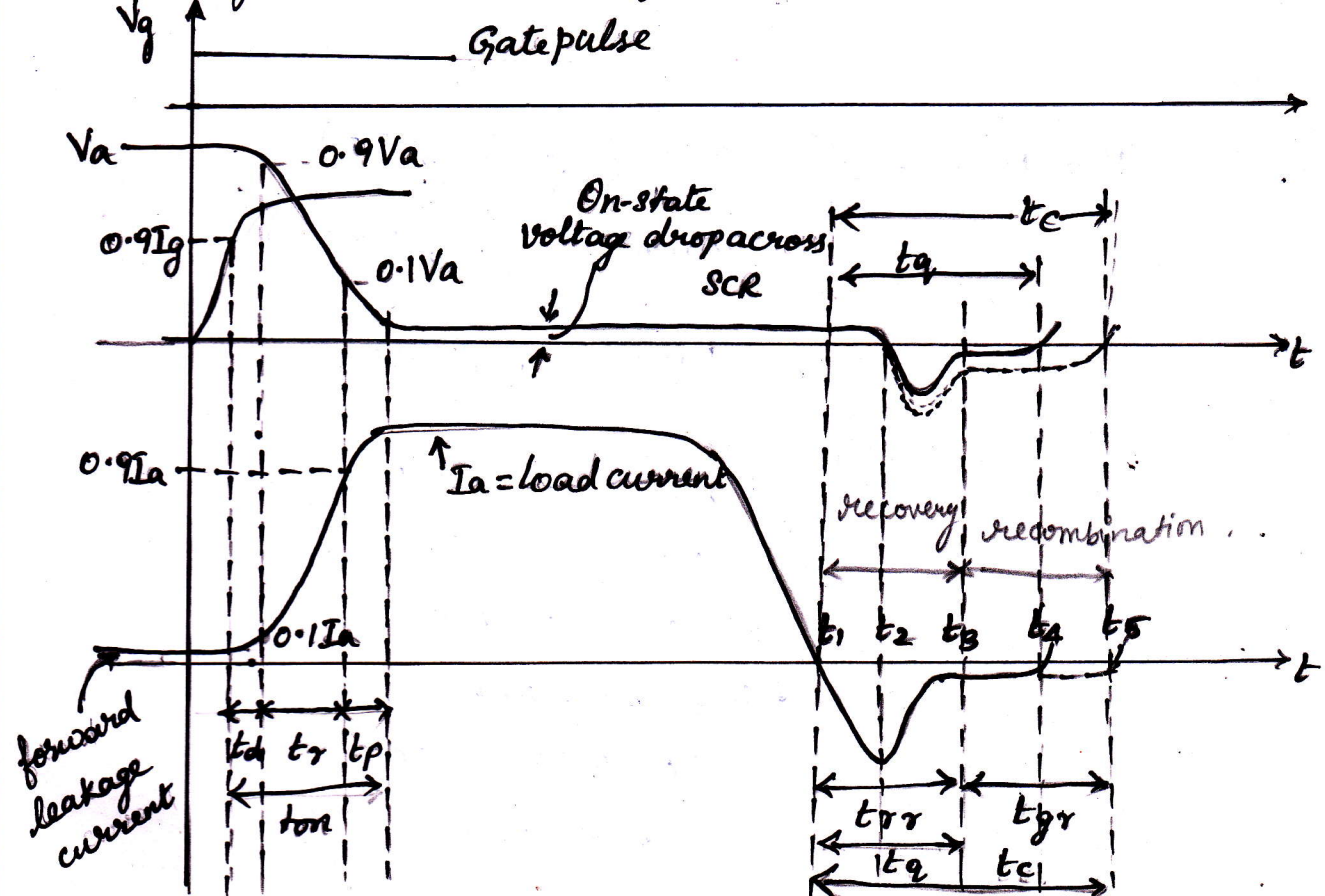 Vg
Gate pulse
Va
0.9Va
0.9Ig
0.1Va
On-state
voltage drop across
SCR
tc
tq
t
0.9Ia
Ia = load current
recovery
recombination
0.1Ia
t1 t2 t3 t4 t5
t
forward
leakage
current
td tr tp
ton
trr tgr
tq tc